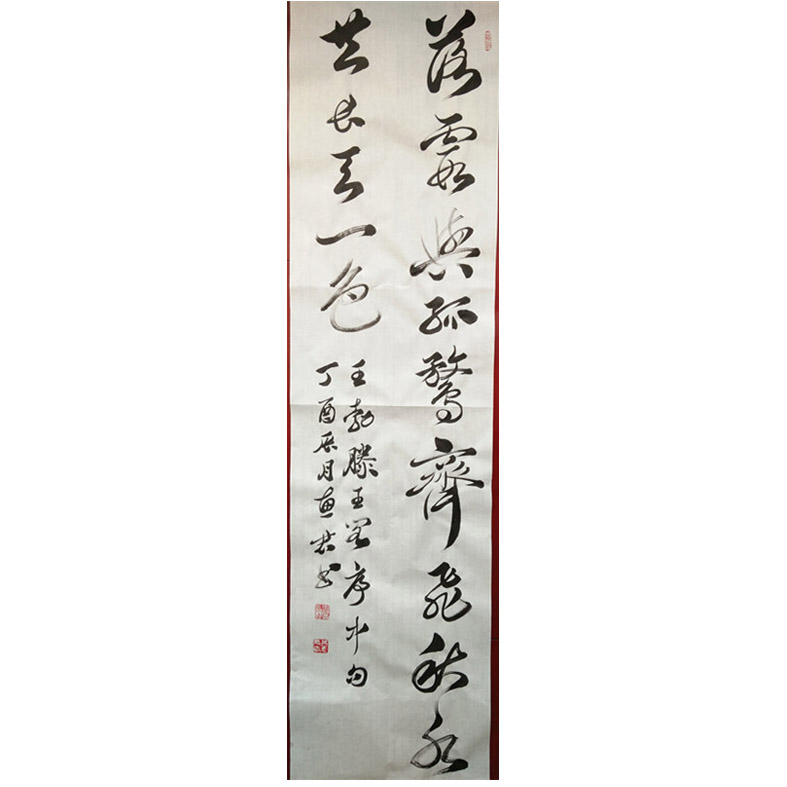 落霞與孤鶩齊飛秋水
共長天一色
王勃滕王閣序中句
丁酉辰月惠君书